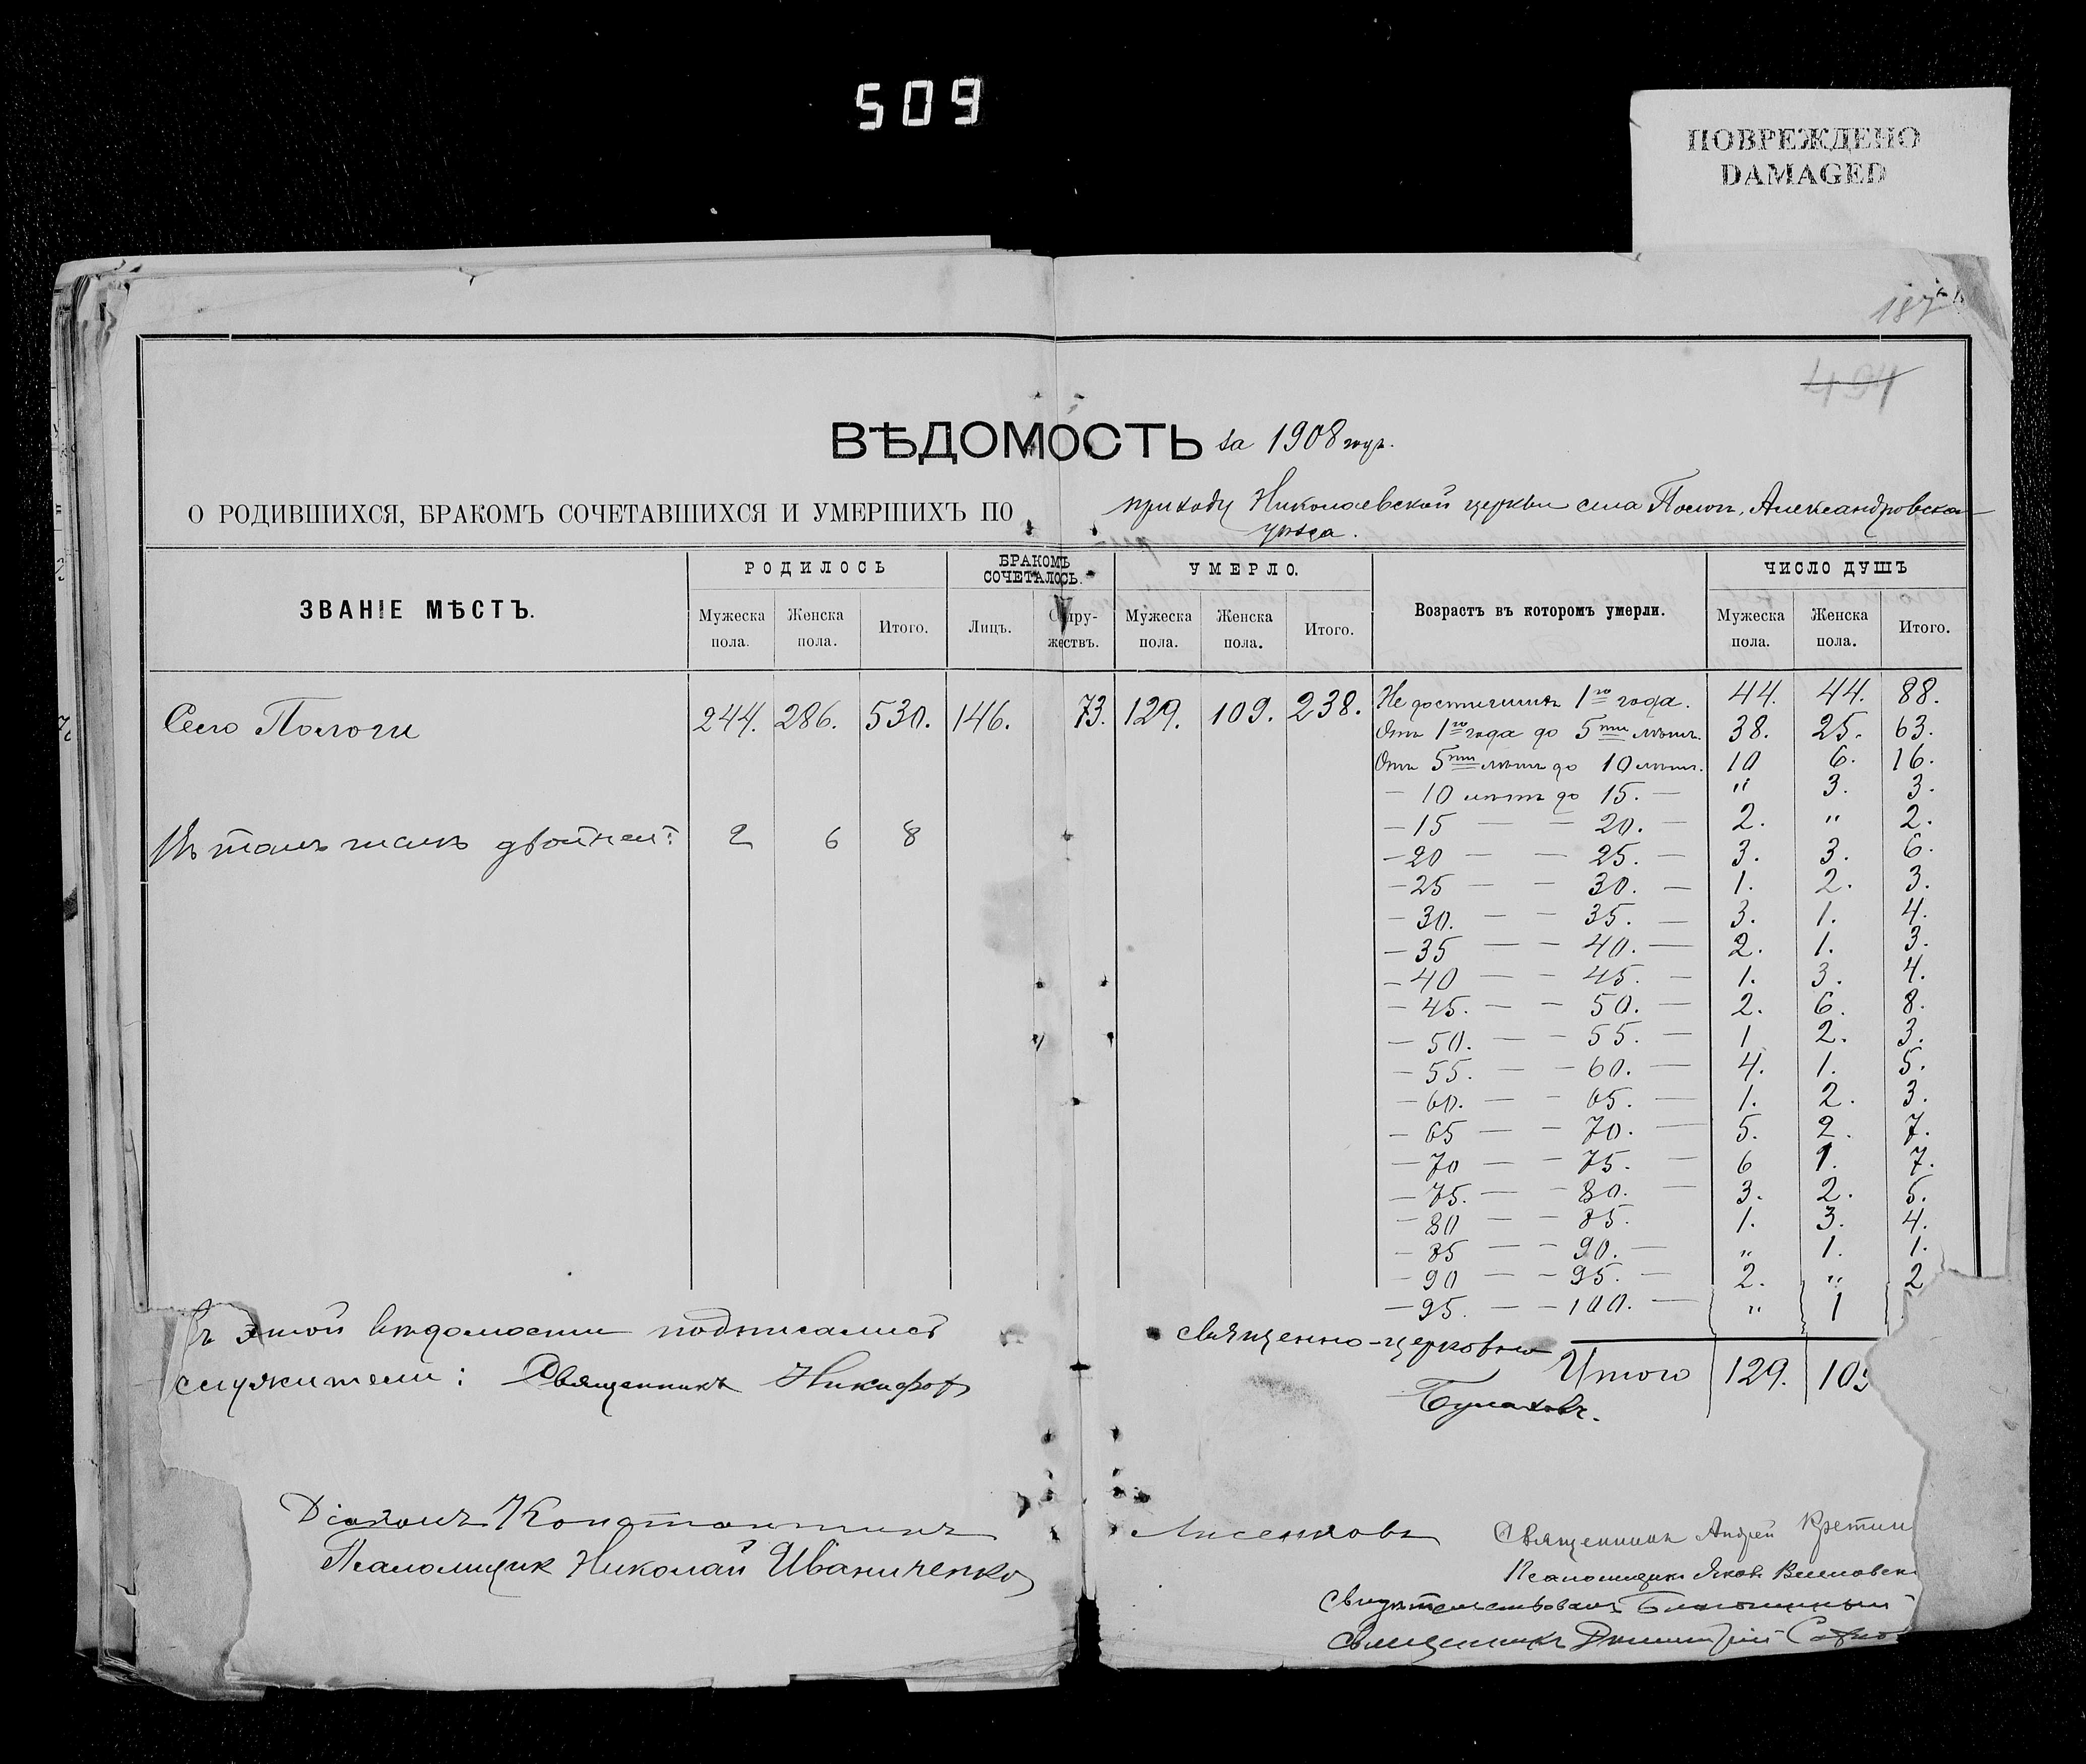 509
ПОВРЕЖДЕНО
DAMAGED
187
494
ВѢДОМОСТЬ за 1908 годъ.
О РОДИВШИХСЯ, БРАКОМЪ СОЧЕТАВШИХСЯ И УМЕРШИХЪ ПО приходу Николаевской церкви села Пологъ, Александровска
уѣзда.
ЗВАНІЕ МѢСТЪ. РОДИЛОСЬ БРАКОМЪ СОЧЕТАЛОСЬ. УМЕРЛО. Возрастъ въ которомъ умерли. ЧИСЛО ДУШЪ
Мужеска пола. Женска пола. Итого. Лицъ. Супружествъ. Мужеска пола. Женска пола. Итого. Мужеска пола. Женска пола. Итого.
Село Пологи 244. 286. 530. 146. 73. 129. 109. 238. Не достигшихъ 1го года. 44. 44. 88.
Отъ 1го года до 5ти лѣтъ. 38. 25. 63.
Отъ 5ти лѣтъ до 10 лѣтъ. 10 6. 16.
— 10 лѣтъ до 15. — " 3. 3.
— 15 — — 20. — 2. " 2.
Въ томъ числѣ двойней: 2 6 8
— 20 — — 25. — 3. 3. 6.
— 25 — — 30. — 1. 2. 3.
— 30. — — 35. — 3. 1. 4.
— 35 — — 40. — 2. 1. 3.
— 40 — — 45. — 1. 3. 4.
— 45. — — 50. — 2. 6. 8.
— 50. — — 55. — 1 2. 3.
— 55. — — 60. — 4. 1. 5.
— 60. — — 65. — 1. 2. 3.
— 65 — — 70. — 5. 2. 7.
— 70 — — 75. — 6 1. 7.
— 75. — — 80. — 3. 2. 5.
— 80 — — 85. 1. 3. 4.
— 85 — — 90. — " 1. 1.
— 90 — — 95. — 2. " 2
— 95. — — 100. — " 1
Итого 129. 109
Къ этой вѣдомости подписались священно-церковно
служители: Священникъ Никифоръ
Діаконъ Константинъ Лисенковъ
Псаломщик Николай Иваниченко
Священникъ Андрей
Псаломщикъ Яковъ
Свидѣтельствовалъ Благочинный
Священникъ Димитрій